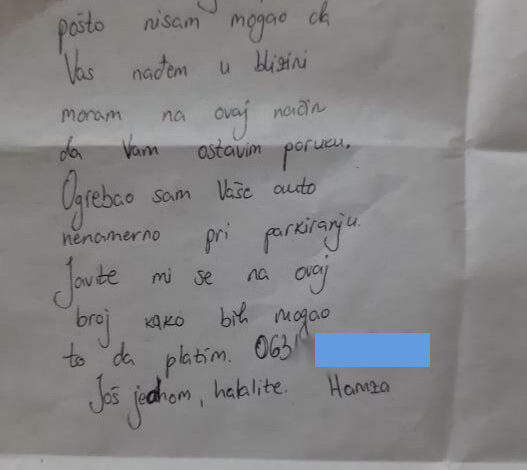 pošto nisam mogao da
Vas nađem u blizini
moram na ovaj način
da Vam ostavim poruku.
Ogrebao sam Vaše auto
nenamerno pri parkiranju.
Javite mi se na ovaj
broj kako bih mogao
to da platim. 063/
Još jednom, halalite. Hamza